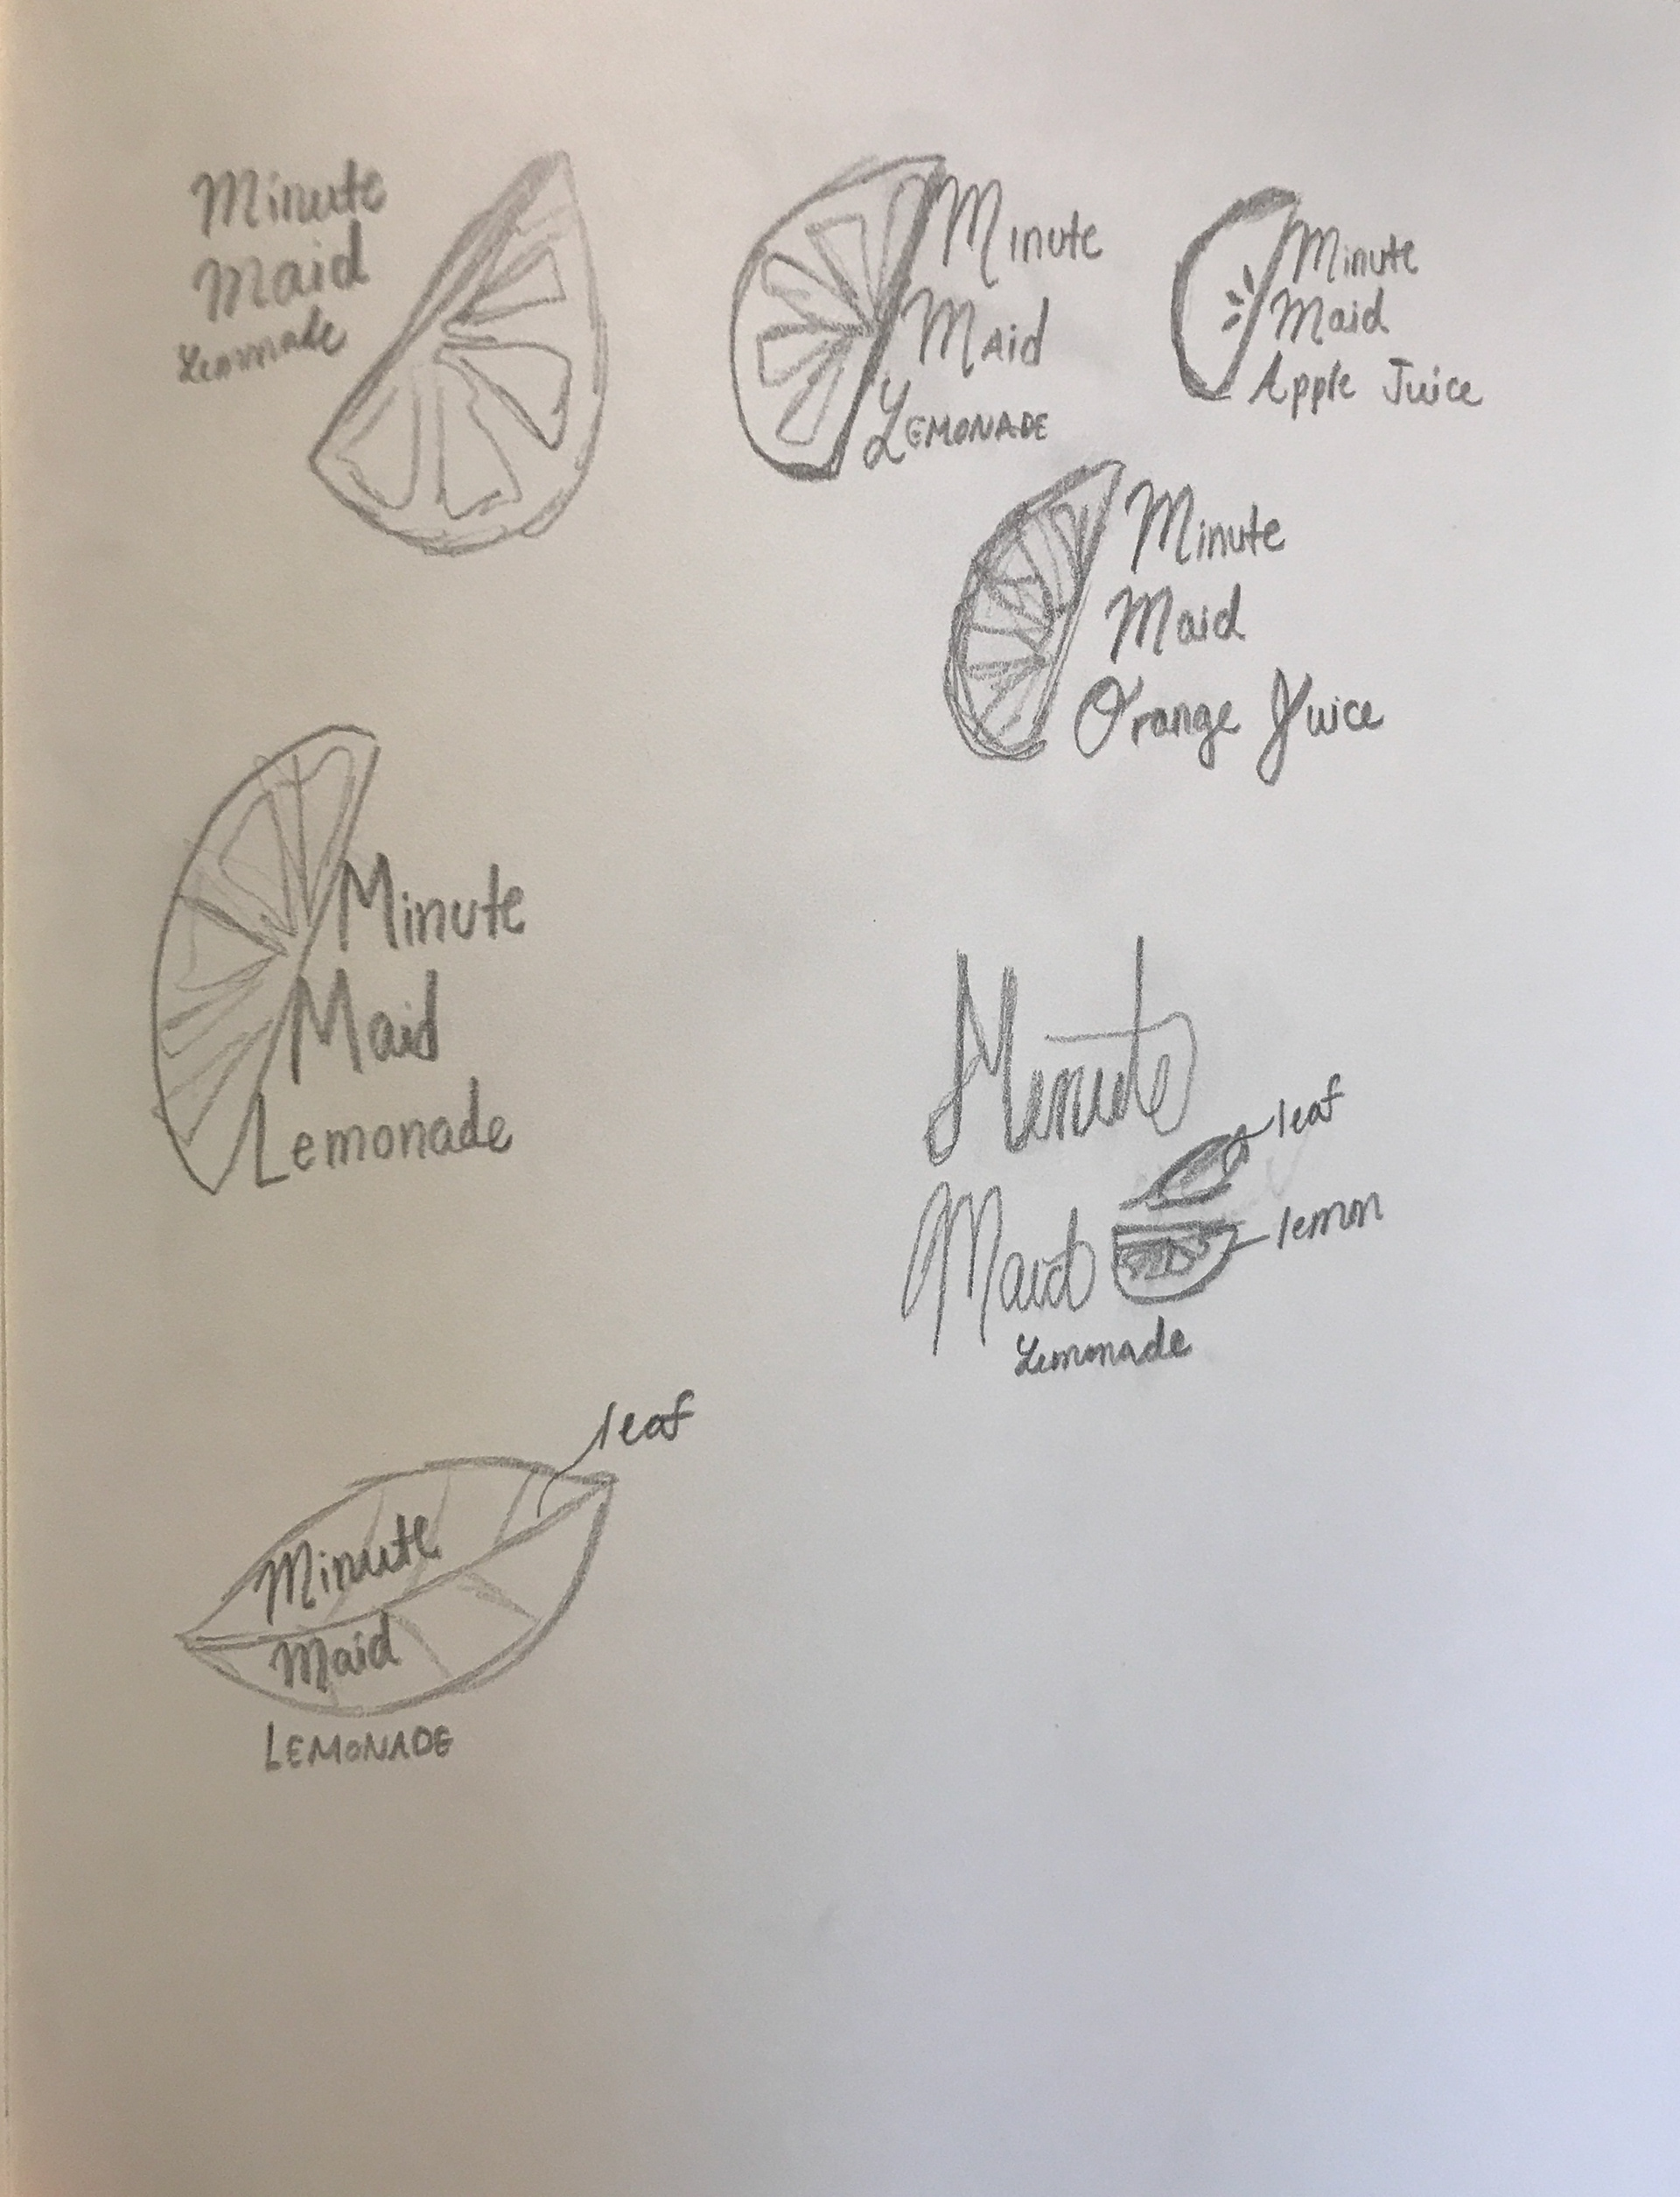 Minute
Maid
Lemonade
Minute
Maid
LEMONADE
Minute
Maid
Apple Juice
Minute
Maid
Orange Juice
Minute
Maid
Lemonade
Minute
leaf
Maid
lemon
Lemonade
leaf
Minute
Maid
LEMONADE